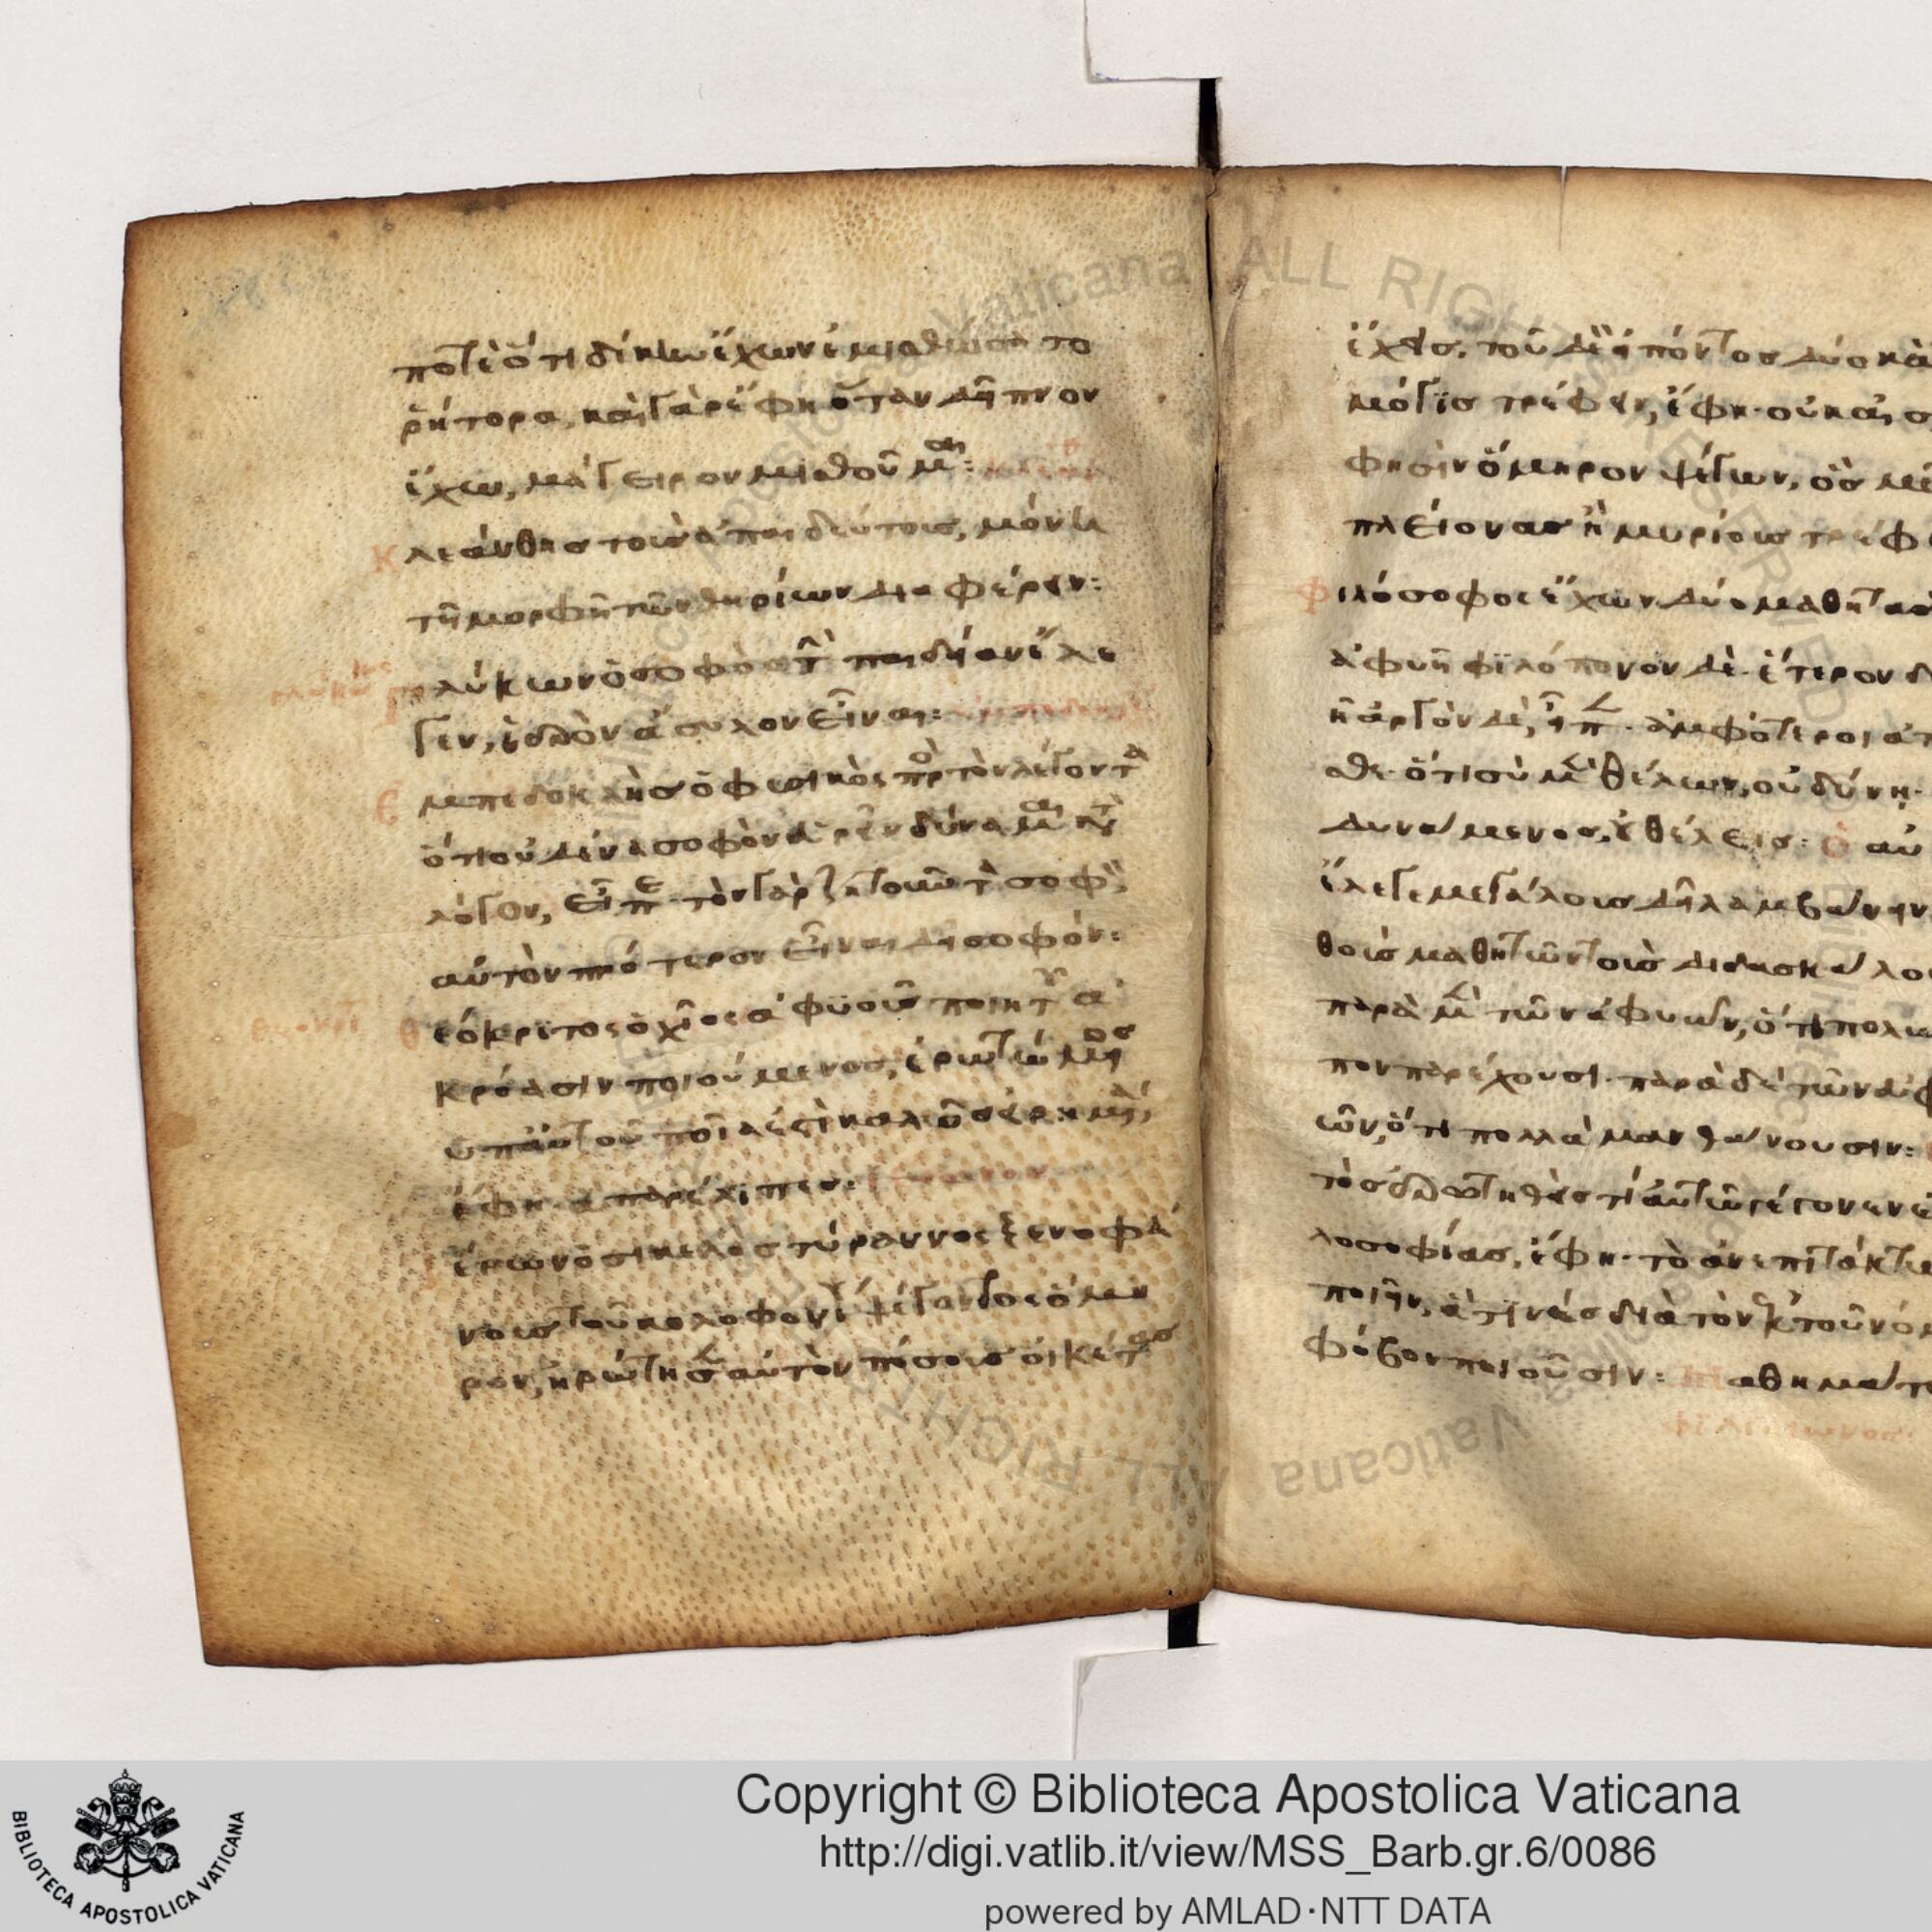 ποτὲ ὅτι δίκην ἔχων ἐμισθώσατο
ῥήτορα, καὶ γὰρ ἔφη ὅταν δεῖπνον
ἔχω, μάγειρον μισθοῦμαι:
Κλεάνθης τοὺς ἀπαιδεύτους, μόνῃ
τῇ μορφῇ τῶν θηρίων διαφέρειν:
Γλύκων ὁ σοφὸς τὴν παιδείαν ἔλε
γεν, ἱερὸν ἄσυλον εἶναι:
Ἐμπεδοκλῆς ὁ φυσικὸς πρὸς τὸν λέγοντα
ὅτι οὐδένα σοφὸν εὑρεῖν δύναμαι κατὰ
λόγον, εἶπε τὸν γὰρ ζητοῦντα σοφὸν,
αὐτὸν πρότερον εἶναι δεῖ σοφόν:
Θεόκριτος ὁ χῖος ἀφυοῦς ποιητοῦ ἀ
κρόασιν ποιούμενος, ἐρωτώμενος
ὑπ' αὐτοῦ ποῖά ἐστι καλῶς εἰρημένα,
ἔφη ἃ παρέλιπες:
Ἱέρων ὁ σικελὸς τύραννος ξενοφά
νους τοῦ κολοφωνίου ψέγοντος ὅμη
ρον, ἠρώτησεν αὐτὸν πόσους οἰκέτας
ἔχεις. τοῦ δὲ εἰπόντος δύο καὶ
μόγις τρέφειν, ἔφη οὐκ αἰσ
φησὶν ὅμηρον ψέγων, ὃς με
πλείονας ἢ μυρίους τρέφ
Φιλόσοφος ἔχων δύο μαθητὰς
ἀφυῆ φιλόπονον δὲ ἕτερον δ
ἀργὸν δὲ, εἶπεν ἀμφότεροι ἀπ
σθε ὅτι σὺ μὲν θέλων, οὐ δύνῃ
δυνάμενος, οὐ θέλεις: Ὁ αὐ
ἔλεγε μεγάλους δεῖ λαμβάνειν
θοὺς μαθητῶν τοὺς διδασκάλου
παρὰ μὲν τῶν ἀφυῶν, ὅτι πολὺ
πον παρέχουσι παρὰ δὲ τῶν εὐφ
ῶν, ὅτι πολλὰ μανθάνουσιν:
τὸς ἐρωτηθεὶς τί αὐτῷ γέγονεν ἐ
λοσοφίας, ἔφη τὸ ἀνεπιτάκτω
ποιεῖν, ἅ τινες διὰ τὸν ἐκ τοῦ νόμ
φόβον ποιοῦσιν: μαθήματ
Copyright © Biblioteca Apostolica Vaticana
http://digi.vatlib.it/view/MSS_Barb.gr.6/0086
powered by AMLAD·NTT DATA
BIBLIOTECA APOSTOLICA VATICANA